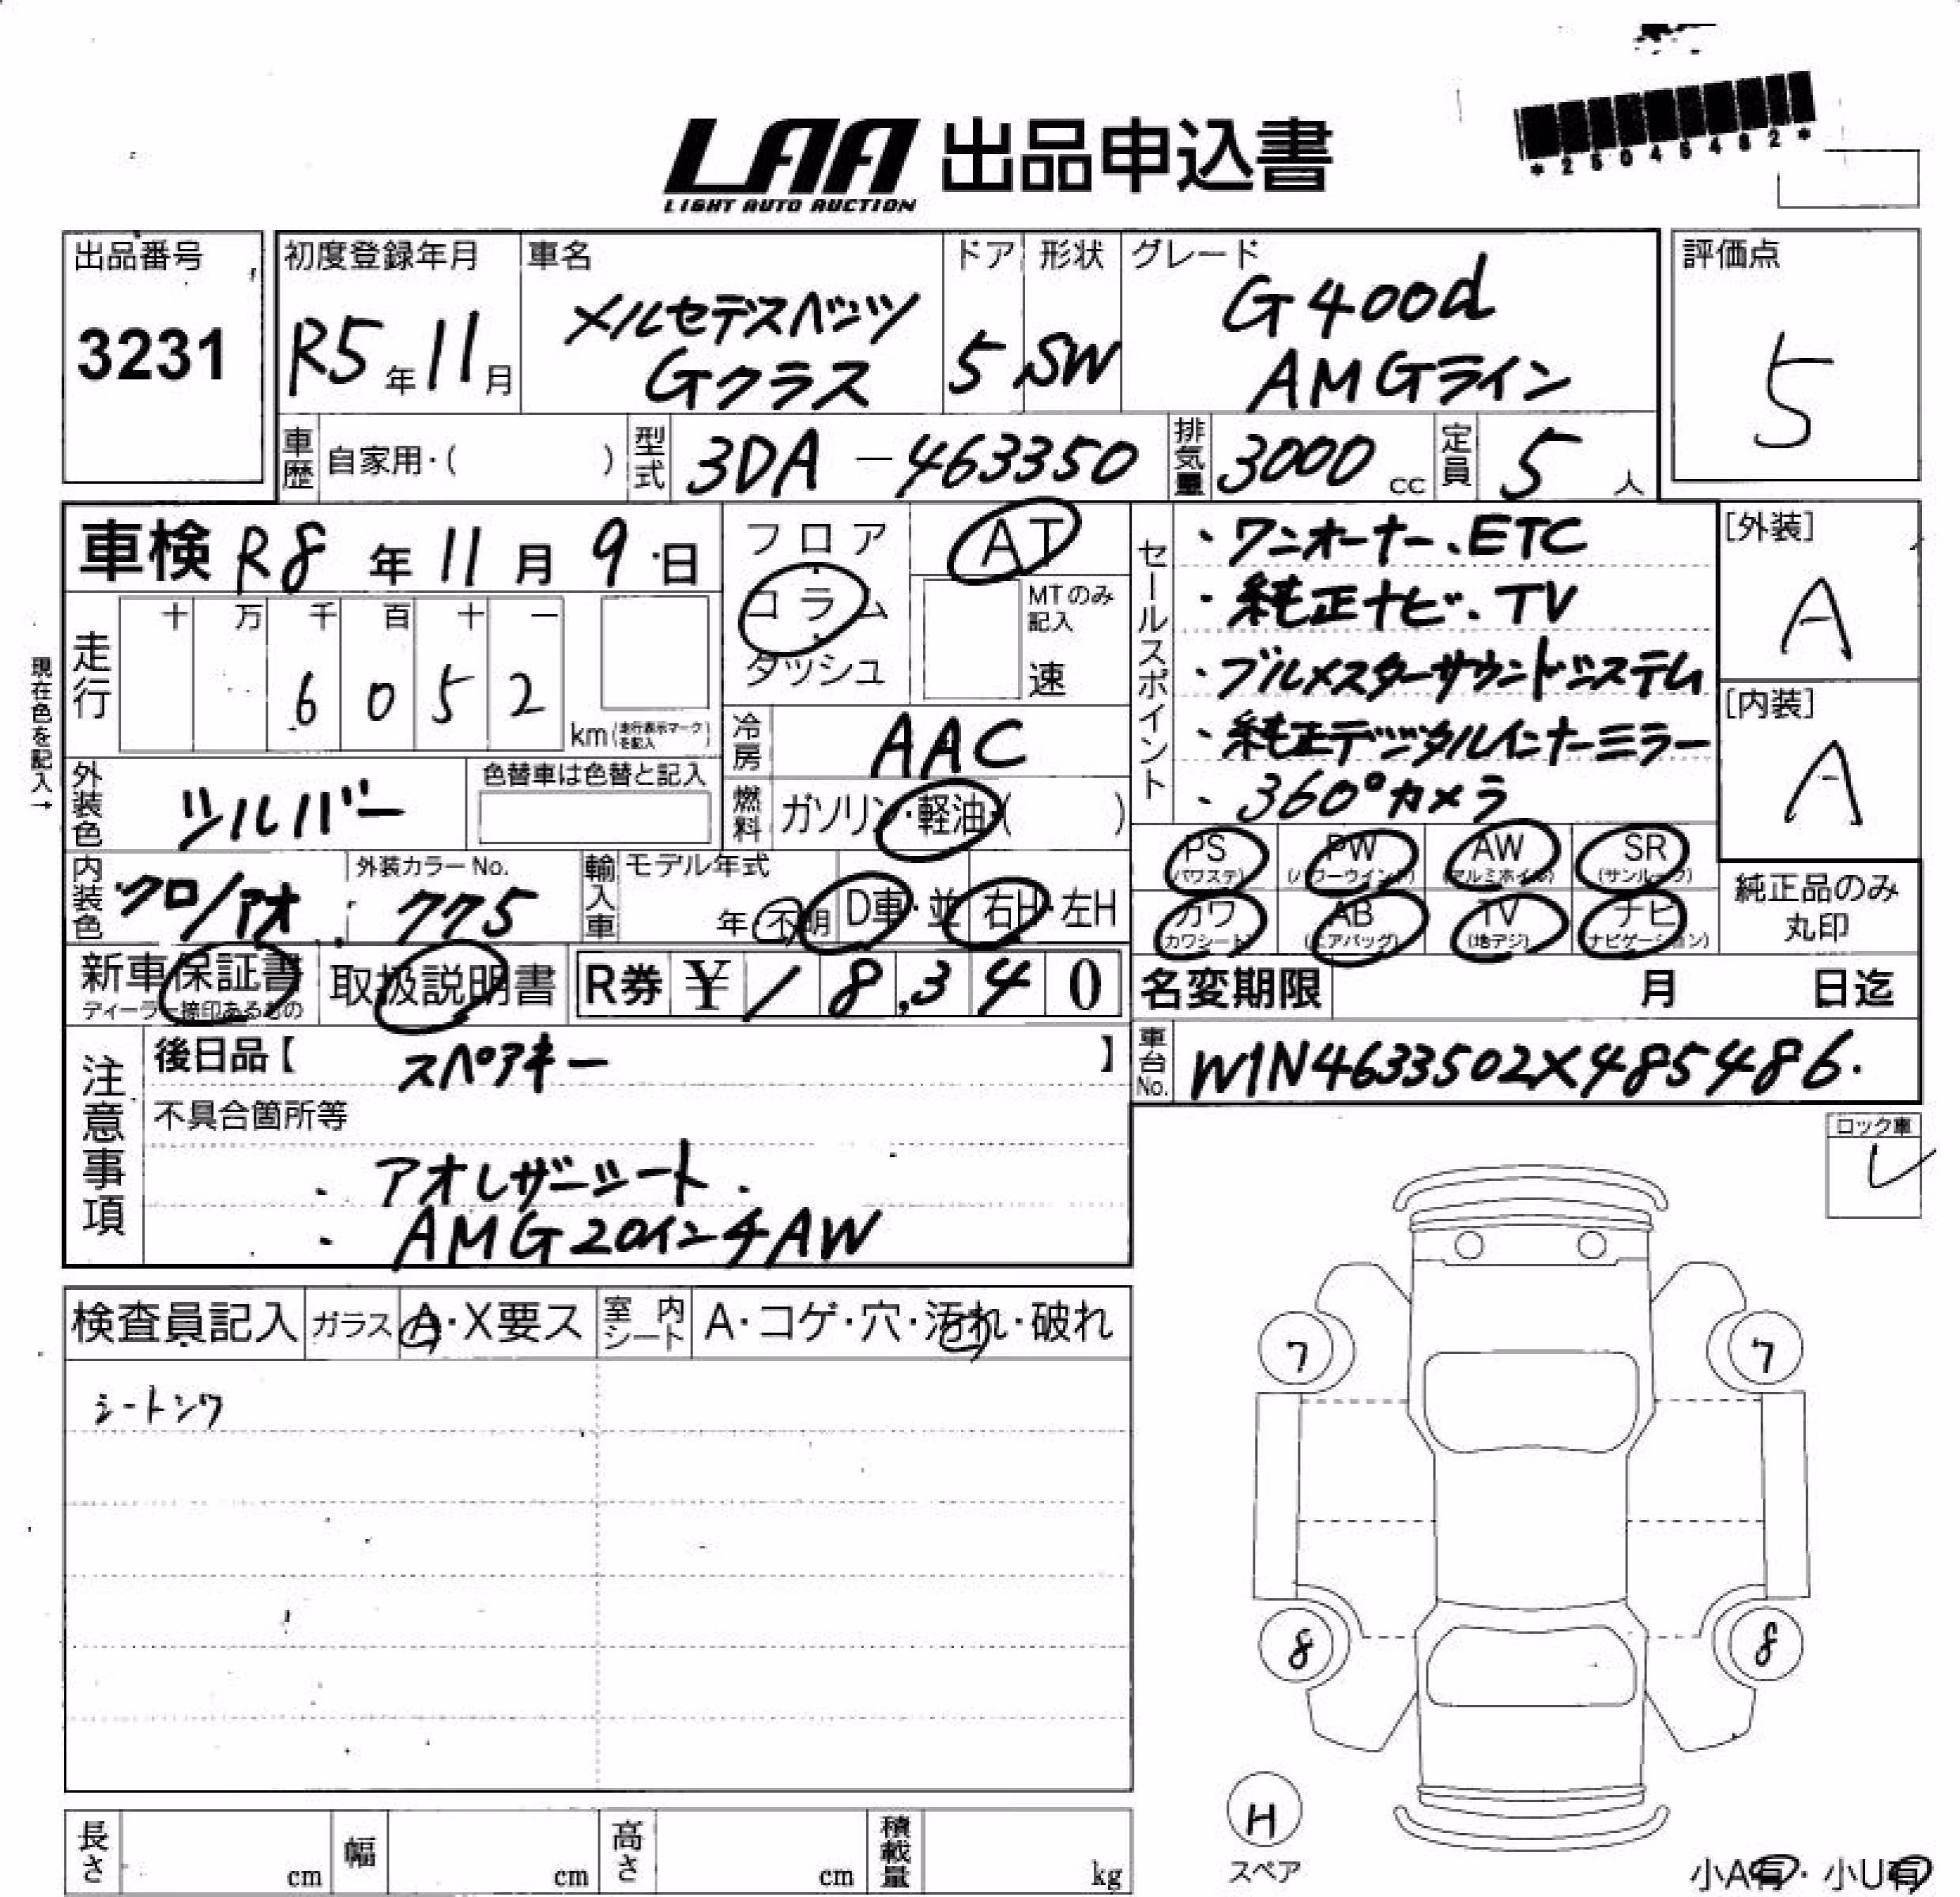 LAA 出品申込書
LIGHT AUTO AUCTION
*25045482*
出品番号
3231
初度登録年月
R5年11月
車名
メルセデスベンツ
Gクラス
ドア
5
形状
SW
グレード
G400d
AMGライン
評価点
5
車歴 自家用・( )
型式 3DA-463350
排気量 3000 cc
定員 5 人
車検 R8年11月9日
フロア
コラム
ダッシュ
AT
MTのみ
記入
速
セールスポイント
・ワンオーナー、ETC
・純正ナビ、TV
・ブルメスターサウンドシステム
・純正デジタルインナーミラー
・360°カメラ
[外装]
A
[内装]
A
現在色を記入→
走行
十 万 千 百 十 一
6 0 5 2
km(走行表示マークを記入)
冷房 AAC
燃料 ガソリン・軽油・( )
外装色 シルバー
色替車は色替と記入
内装色 クロ/アオ
外装カラーNo.
775
輸入車 モデル年式
年 不明 D車・並 右H・左H
PS (パワステ)
PW (パワーウインド)
AW (アルミホイル)
SR (サンルーフ)
カワ (カワシート)
AB (エアバッグ)
TV (地デジ)
ナビ (ナビゲーション)
純正品のみ
丸印
新車保証書
ディーラー捺印あるもの
取扱説明書
R券 ¥18,340
名変期限 月 日迄
注意事項
後日品【 スペアキー 】
車台No. W1N4633502X485486.
不具合箇所等
・アオレザーシート.
・AMG20インチAW
ロック車
レ
検査員記入 ガラス A・X要ス 室内シート A・コゲ・穴・汚れ・破れ
シートシワ
7 7
8 8
H
スペア
長さ cm 幅 cm 高さ cm 積載量 kg
小A有・小U有